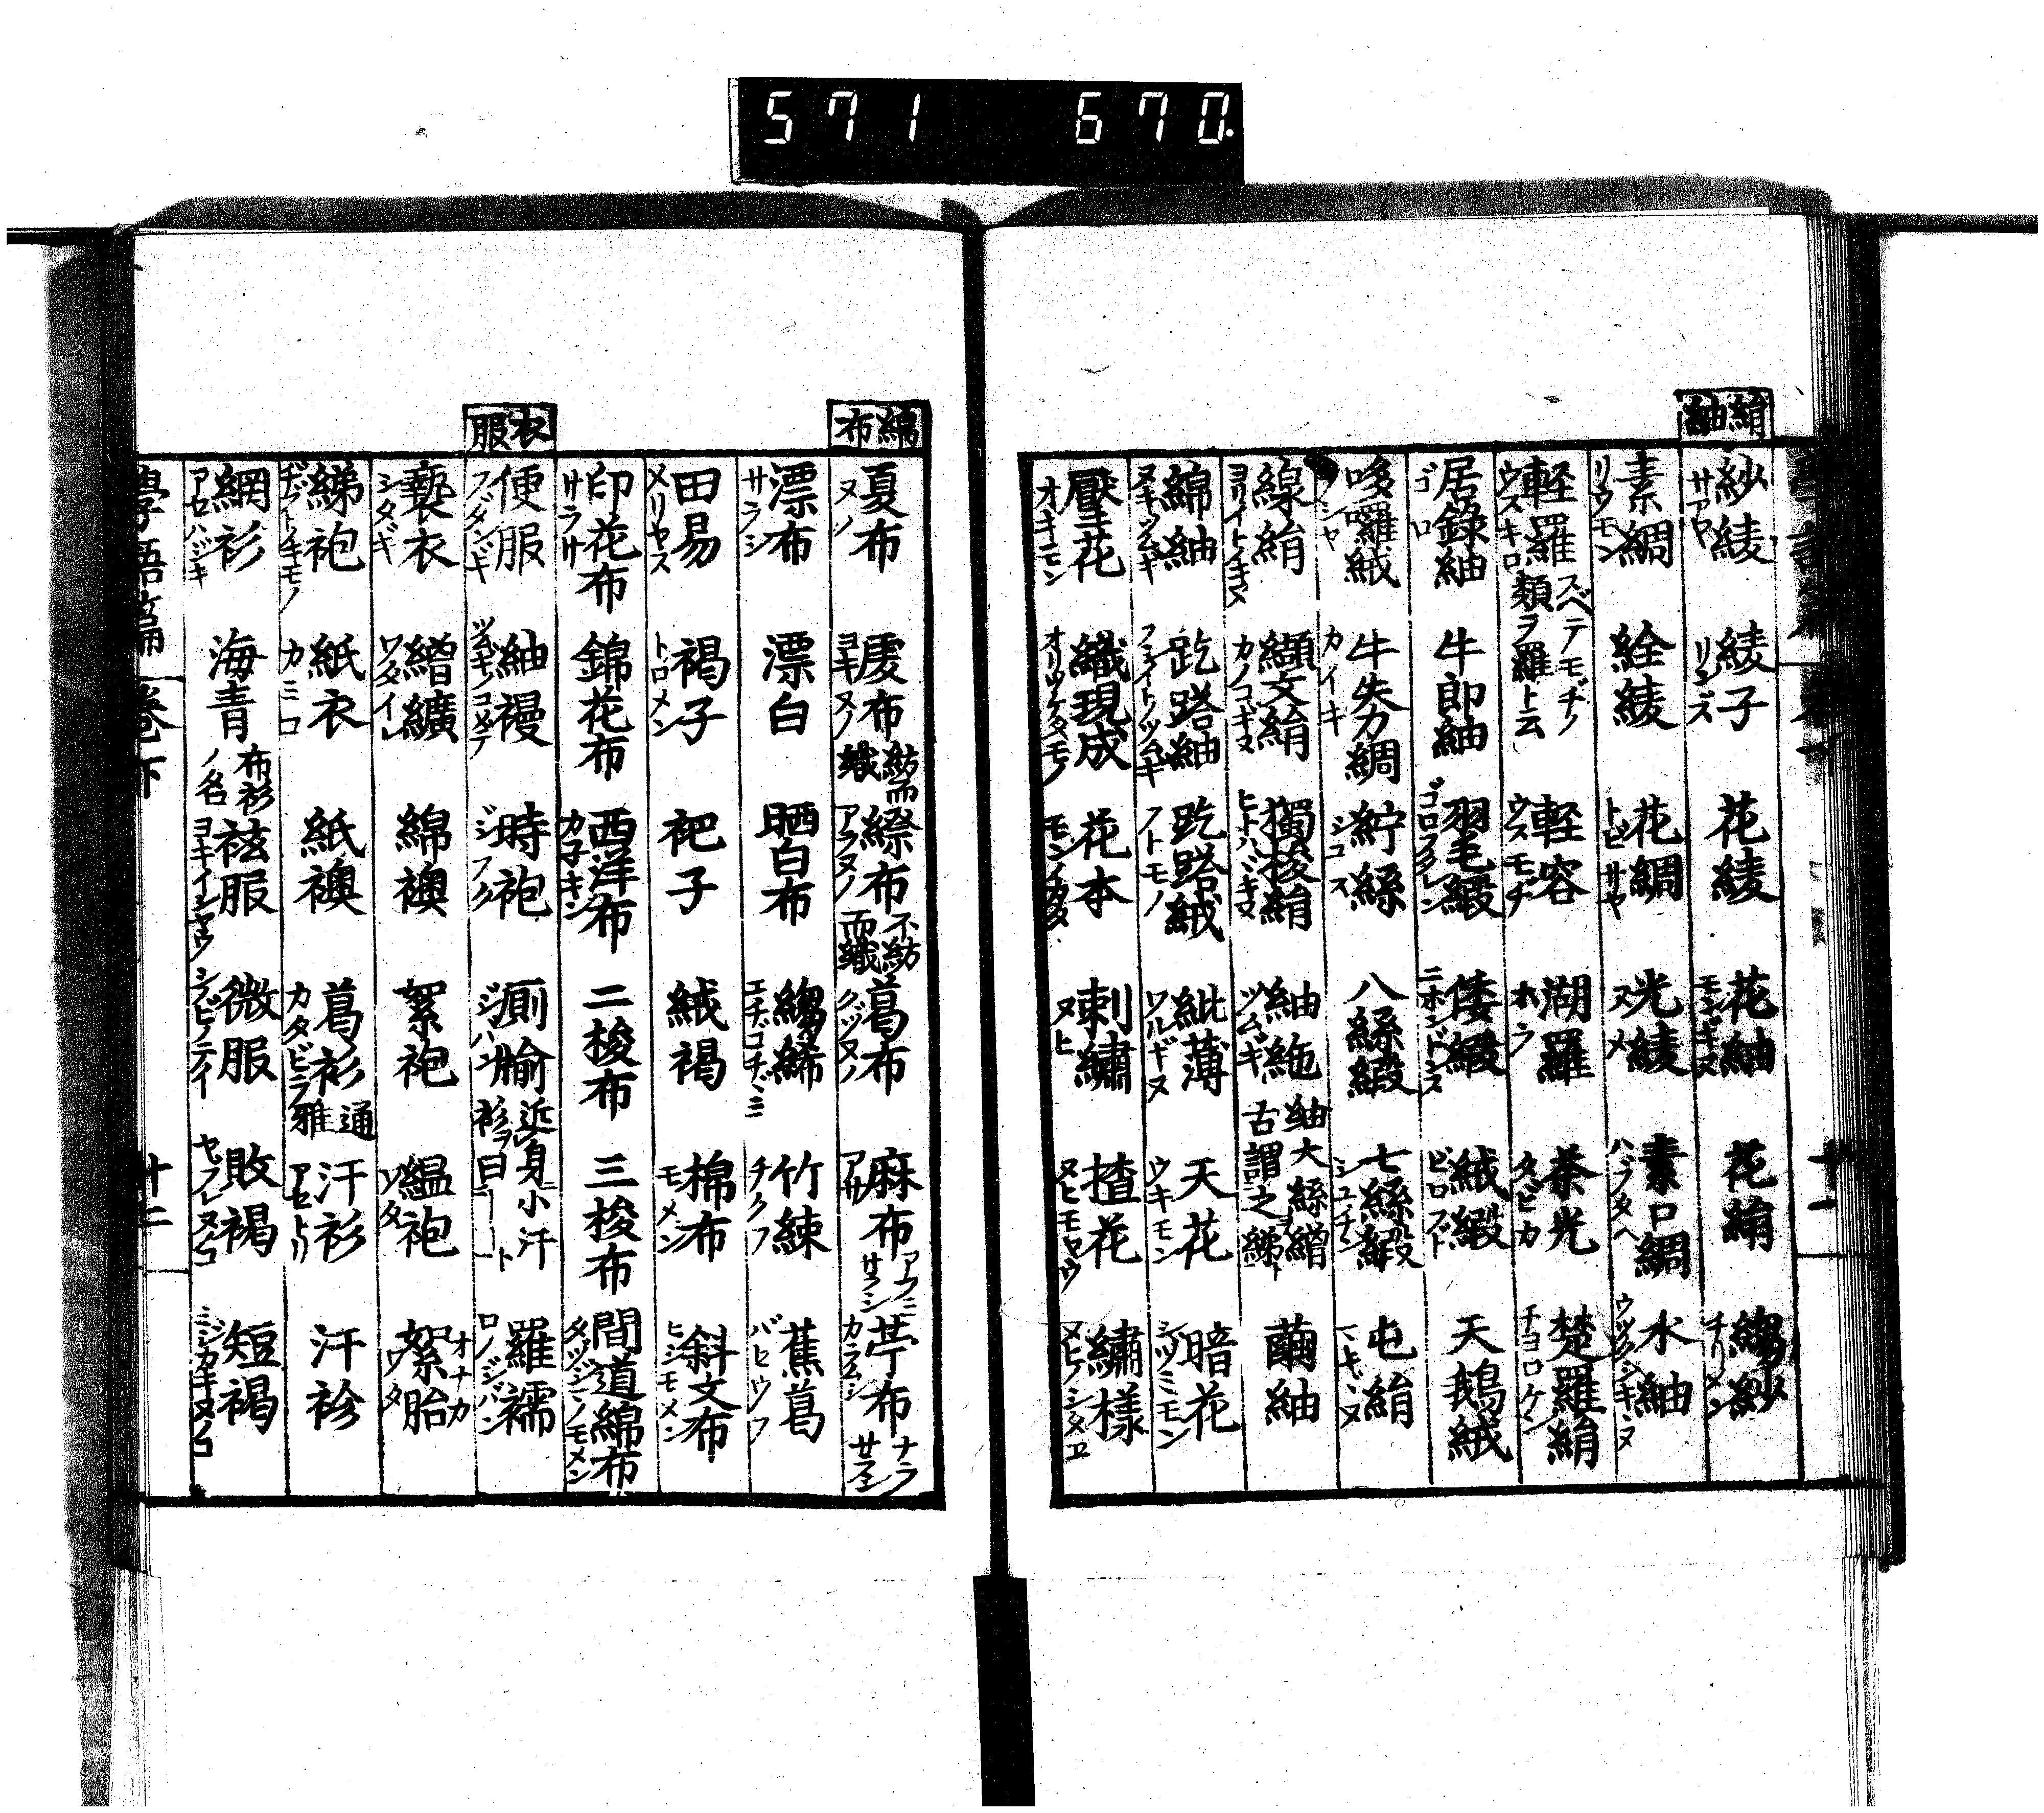 571 670
絹紬
紗綾 サアヤ 綾子 リンズ 花綾 花紬 モンギヌ 花絹 縐紗 チリメン
素綢 リウモン 絟綾 花綢 トビサヤ 光綾 ヌメ 素口綢 ハブタヘ 水紬 ウツクシキキヌ
軽羅 ウスキロ スベテモヂノ類ヲ羅ト云 軽容 ウスモヂ 湖羅 ホラ 茶光 タビカ 楚羅絹 チヨロケン
居錄紬 ゴロ 牛郎紬 羽毛緞 ゴロフクレン 倭緞 ニホンドンス 絨緞 ビロフト 天鵝絨
哆囉絨 カイキ 牛失力綢 紵絲 シユス 八絲緞 七絲緞 シユチン 屯絹
線絹 纈文絹 カノコギヌ 獨梭絹 ヒトハバギヌ 紬絁 ツムギ 紬大絲繒古謂之綈ト 繭紬
綿紬 ヌキツムギ 趷蹹紬 フシイトツムギ 趷蹹絨 フトモノ 紕薄 ワルギヌ 天花 ウキモン 暗花 シヅミモン
壓花 オキモン 織現成 オリツケタモノ 花本 刺繡 ヌヒ 揸花 繡樣 ヌヒノシタヱ
綿布
夏布 ヌノ 䖍布 ヨキヌノ 紡而織 縩布 アラヌノ 不紡而織 葛布 クヅヌノ 麻布 アサ 苧布 カラムシ ナラサラシ
漂布 サラシ 漂白 晒白布 縐絺 エチゴチヾミ 竹練 チクフ 蕉葛 バセウフ
田昜 メリヤス 褐子 トロメン 耙子 絨褐 棉布 モメン 斜文布 ヒシモメン
印花布 サラサ 錦花布 西洋布 カナキン 二梭布 三梭布 間道綿布 タツジマノモメン
衣服
便服 フダンギ 紬襏 時袍 ジフク 廁牏 ジバン 近身小汗衫ヲ曰 羅襦 ロノジバン
褻衣 シタギ 繒纊 ワタイレ 綿襖 絮袍 縕袍 ワタ 絮胎 オナカワタ
綈袍 紙衣 カミコ 紙襖 葛衫 カタビラ 通雅 汗衫 アセトリ 汗袗
網衫 アセハジキ 海青 布衫ノ名 袨服 ヨキイシヤウ 微服 シノビノテイ 敗褐 ヤブレヌノコ 短褐 ミジカキヌノコ
學語篇 卷下 十二